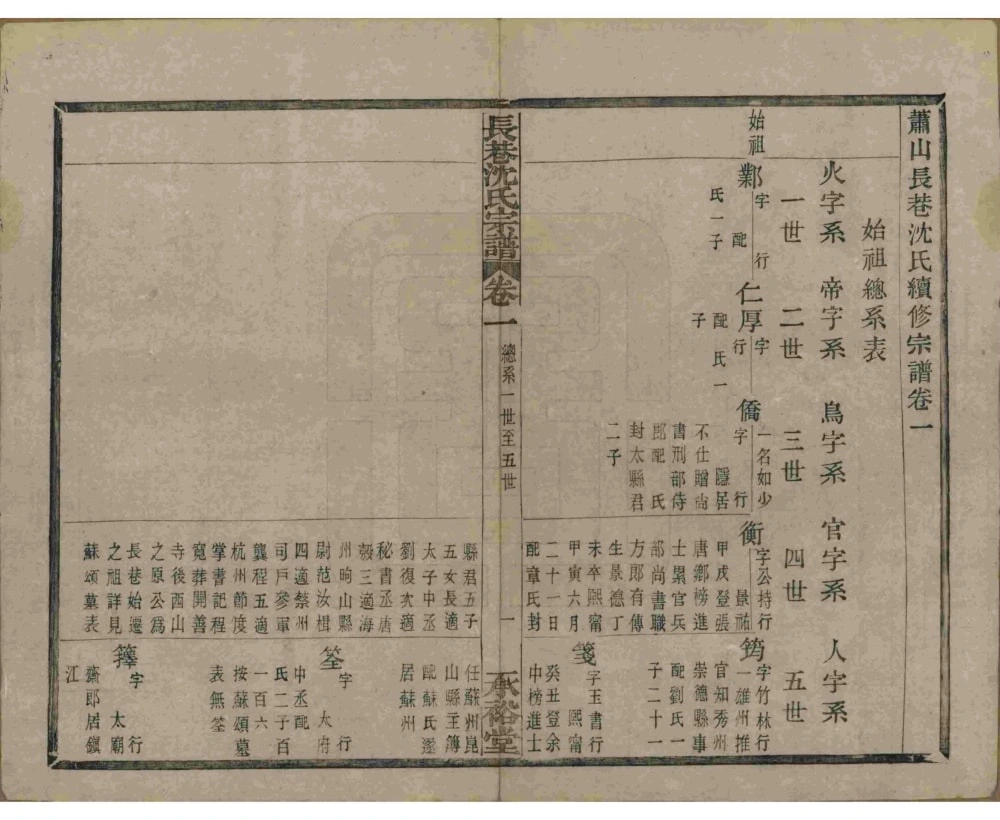 蕭山長巷沈氏續修宗譜卷一
始祖總系表
火字系 帝字系 鳥字系 官字系 人字系
一世 二世 三世 四世 五世
始祖
鄴 字 行
配
氏一子
仁厚 字 行
配 氏一
子
僑 一名如少
字 行
隱居
不仕贈尚
書刑部侍
郎配 氏
封太縣君
二子
衡 字公持行
景祐
甲戌登張
唐鄉榜進
士累官兵
部尚書職
方郎有傳
生景德丁
未卒熙甯
甲寅六月
二十一日
配章氏封
縣君五子
五女長適
太子中丞
劉復次適
秘書丞唐
愨三適海
州昫山縣
尉范汝楫
四適蔡州
司戶參軍
龔程五適
杭州節度
掌書記程
寬葬開善
寺後西山
之原公為
長巷始遷
之祖詳見
蘇頌墓表
筠 字竹林行
一雄州推
官知秀州
崇德縣事
配劉氏一
子二十一
箋 字玉書行
熙甯
癸丑登余
中榜進士
任蘇州崑
山縣主簿
配蘇氏遂
居蘇州
筌 字 行
太府
中丞配
氏二子百
一百六
按蘇頌墓
表無筌
籜 字 行
太廟
齋郎居鎮
江
長巷沈氏宗譜 卷一 總系一世至五世 一 承裕堂